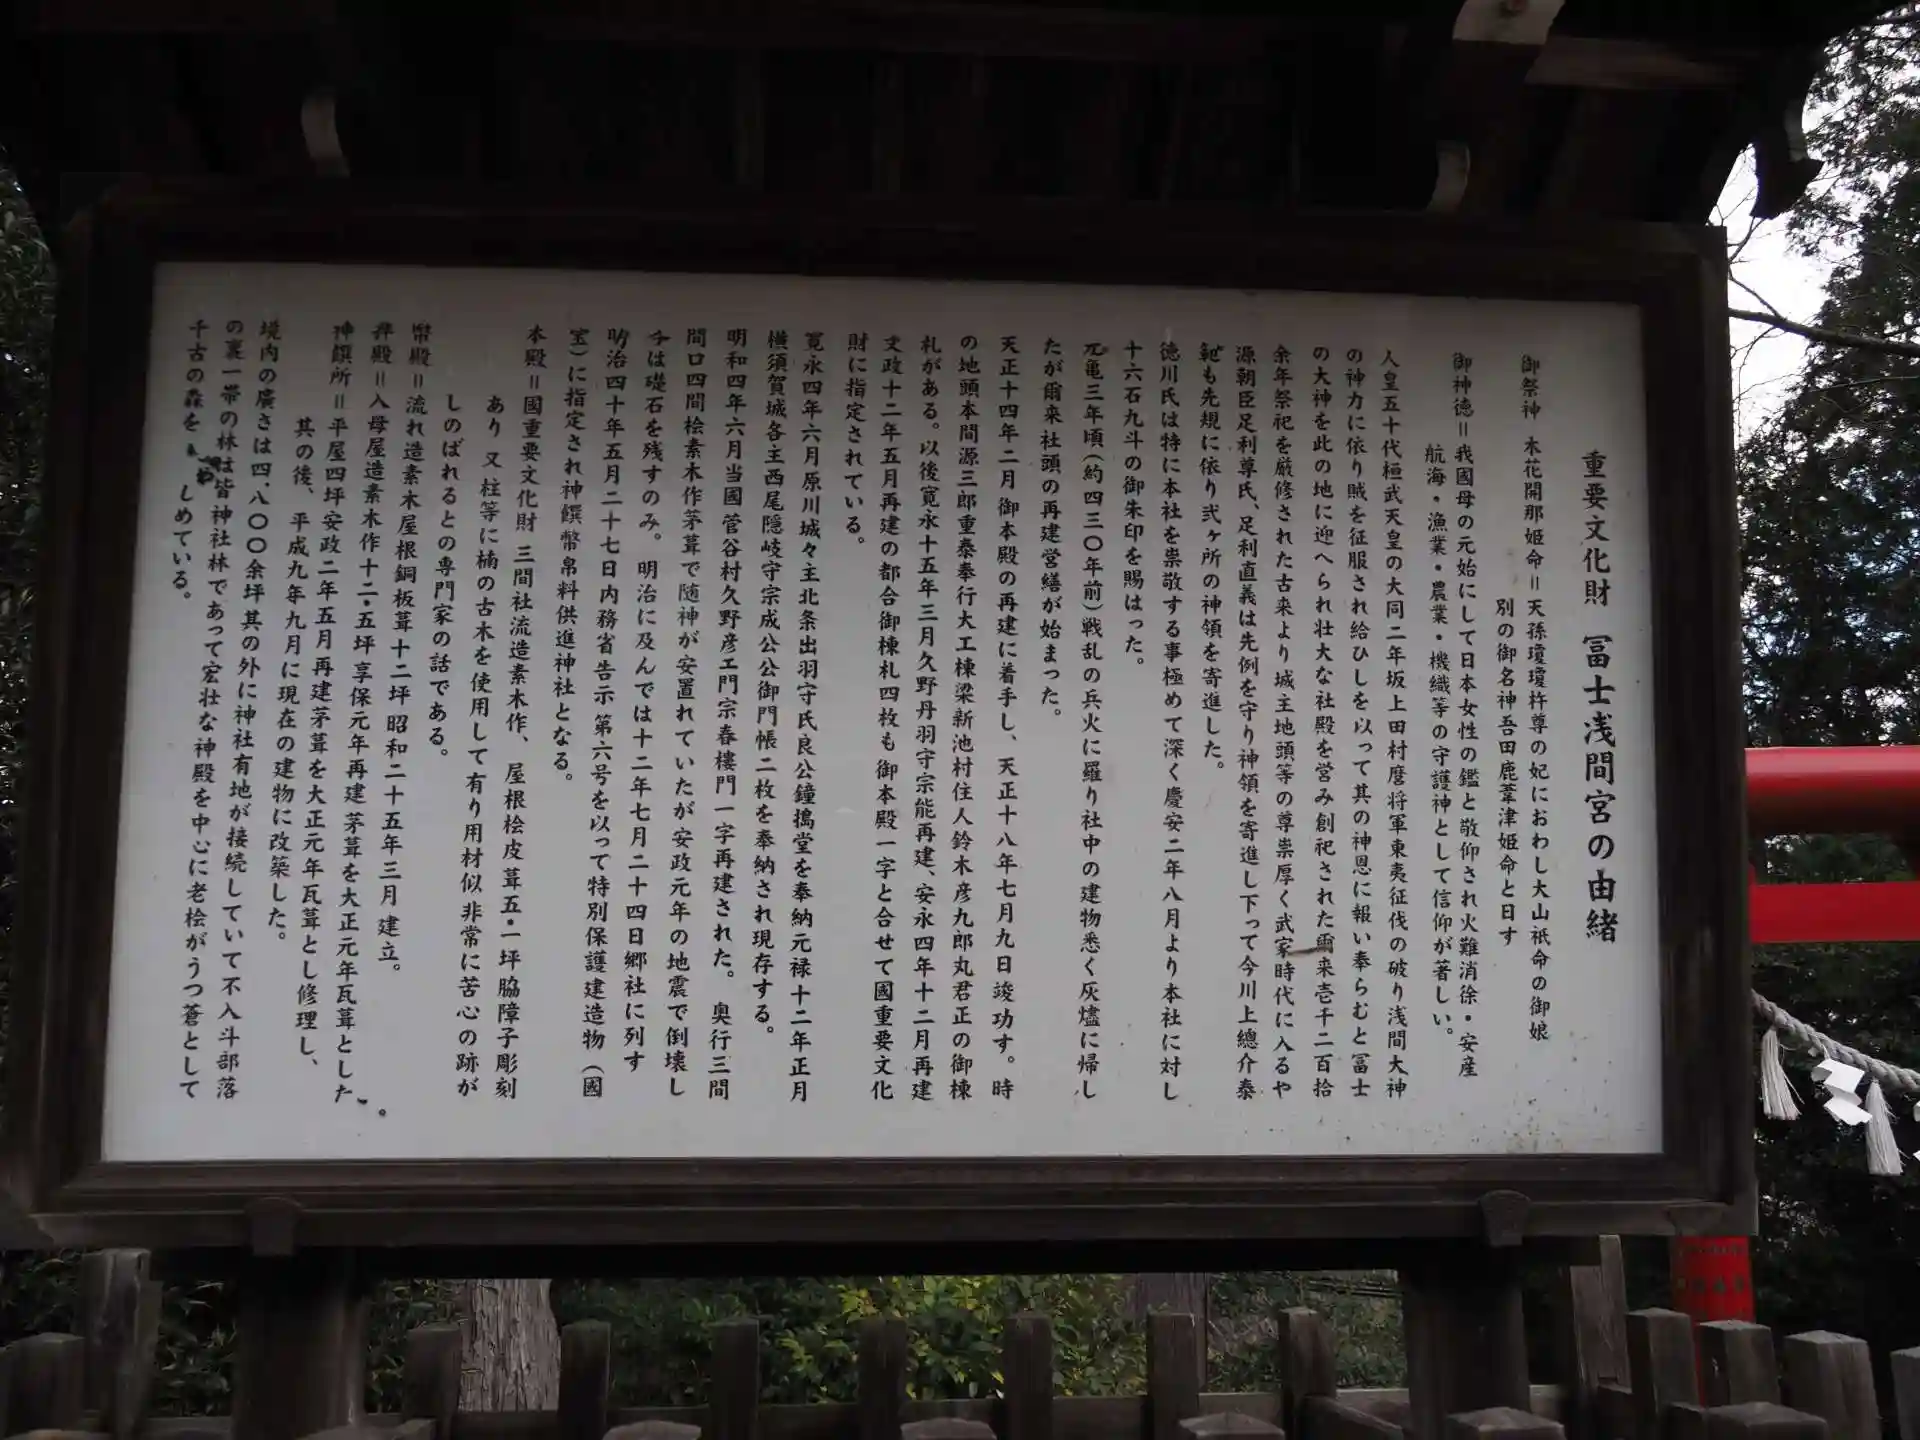 重要文化財 冨士浅間宮の由緒
御祭神 木花開那姫命＝天孫瓊瓊杵尊の妃におわし大山祇命の御娘
別の御名神吾田鹿葦津姫命と日す
御神徳＝我國母の元始にして日本女性の鑑と敬仰され火難消徐・安産
航海・漁業・農業・機織等の守護神として信仰が著しい。
人皇五十代桓武天皇の大同二年坂上田村麿将軍東夷征伐の破り浅間大神
の神力に依り賊を征服され給ひしを以って其の神恩に報い奉らむと冨士
の大神を此の地に迎へられ壮大な社殿を営み創祀された爾来壱千二百拾
余年祭祀を厳修された古来より城主地頭等の尊崇厚く武家時代に入るや
源朝臣足利尊氏、足利直義は先例を守り神領を寄進し下って今川上總介泰
範も先規に依り弐ヶ所の神領を寄進した。
徳川氏は特に本社を崇敬する事極めて深く慶安二年八月より本社に対し
十六石九斗の御朱印を賜はった。
元亀三年頃（約四三〇年前）戦乱の兵火に羅り社中の建物悉く灰燼に帰し
たが爾来社頭の再建営繕が始まった。
天正十四年二月御本殿の再建に着手し、天正十八年七月九日竣功す。時
の地頭本間源三郎重泰奉行大工棟梁新池村住人鈴木彦九郎丸君正の御棟
札がある。以後寛永十五年三月久野丹羽守宗能再建、安永四年十二月再建
文政十二年五月再建の都合御棟札四枚も御本殿一字と合せて國重要文化
財に指定されている。
寛永四年六月原川城々主北条出羽守氏良公鐘搗堂を奉納元禄十二年正月
横須賀城各主西尾隠岐守宗成公公御門帳二枚を奉納され現存する。
明和四年六月当國菅谷村久野彦エ門宗春樓門一字再建された。奥行三間
間口四間桧素木作茅葺で随神が安置れていたが安政元年の地震で倒壊し
今は礎石を残すのみ。明治に及んでは十二年七月二十四日郷社に列す
明治四十年五月二十七日内務省告示第六号を以って特別保護建造物（國
宝）に指定され神饌幣帛料供進神社となる。
本殿＝國重要文化財 三間社流造素木作、屋根桧皮葺五・一坪脇障子彫刻
あり又柱等に楠の古木を使用して有り用材似非常に苦心の跡が
しのばれるとの専門家の話である。
幣殿＝流れ造素木屋根銅板葺十二坪昭和二十五年三月建立。
拝殿＝入母屋造素木作十二・五坪享保元年再建茅葺を大正元年瓦葺とした。
神饌所＝平屋四坪安政二年五月再建茅葺を大正元年瓦葺とし修理し、
其の後、平成九年九月に現在の建物に改築した。
境内の廣さは四、八〇〇余坪其の外に神社有地が接続していて不入斗部落
の裏一帯の林は皆神社林であって宏壮な神殿を中心に老桧がうつ蒼として
千古の森を しめている。